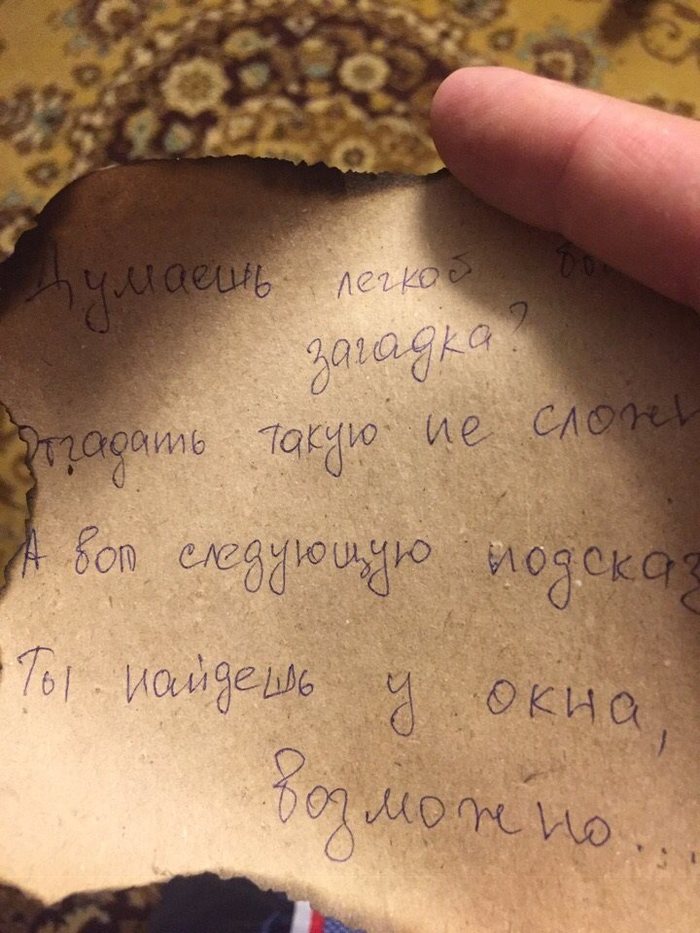 Думаешь легкой
загадка?
Отгадать такую не
А вот следующую
Ты найдешь у окна,
возможно...